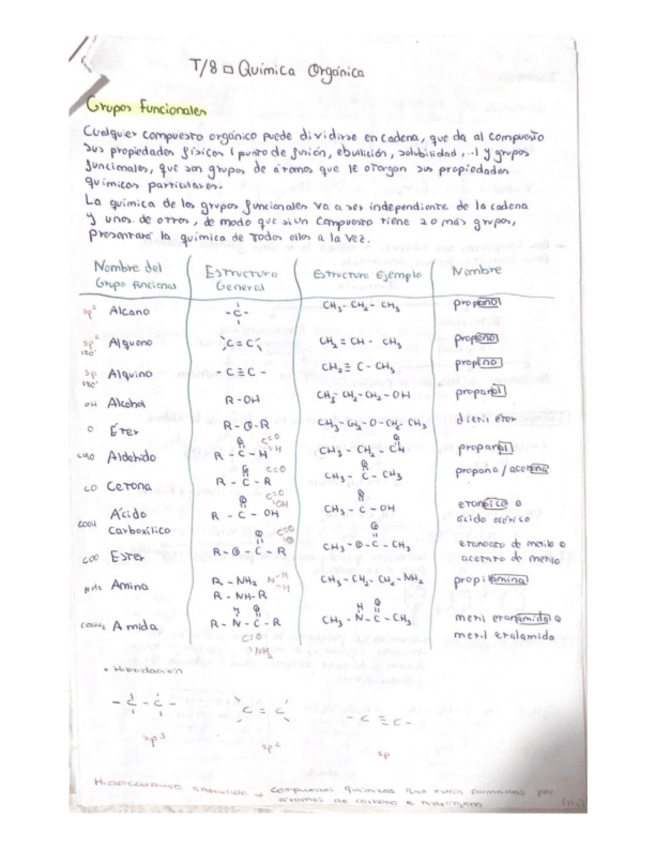 T/8 □ Química Orgánica
Grupos Funcionales
Cualquier compuesto orgánico puede dividirse en cadena, que da al compuesto
sus propiedades físicas (punto de fusión, ebullición, solubilidad, ...) y grupos
funcionales, que son grupos de átomos que le otorgan sus propiedades
químicas particulares.
La química de los grupos funcionales va a ser independiente de la cadena
y unos de otros, de modo que si un compuesto tiene 2 o más grupos,
presentará la química de todos ellos a la vez.
Nombre del Grupo funcional | Estructura General | Estructura Ejemplo | Nombre
sp³ Alcano -C- CH₃-CH₂-CH₃ propano
sp² 120° Alqueno C=C CH₂=CH-CH₃
sp 180° Alquino -C≡C- CH₂≡C-CH₃ propino
OH Alcohol R-OH CH₃-CH₂-CH₂-OH propanol
O Éter R-O-R CH₃-CH₂-O-CH₂-CH₃ dietil eter
CHO Aldehído R-C-H O C=O -H CH₃-CH₂-CH O propanal
CO Cetona R-C-R O C=O CH₃-C-CH₃ O propana/acetona
COOH Ácido Carboxílico R-C-OH O C=O OH CH₃-C-OH O etanoico o ácido acético
COO Ester R-O-C-R O C=O CH₃-O-C-CH₃ O etanoato de metilo o acetato de metilo
NH₂ Amina R-NH₂ R-NH-R N-H -H CH₃-CH₂-CH₂-NH₂ propilamina
CONH₂ Amida R-N-C-R H O C=O NH₂ CH₃-N-C-CH₃ H O metil etanamida o metil etalamida
• Hibridación
-C-C- C=C -C≡C-
sp³ sp² sp
Hidrocarburo saturado → compuestos químicos que están formados por
átomos de carbono e hidrógeno